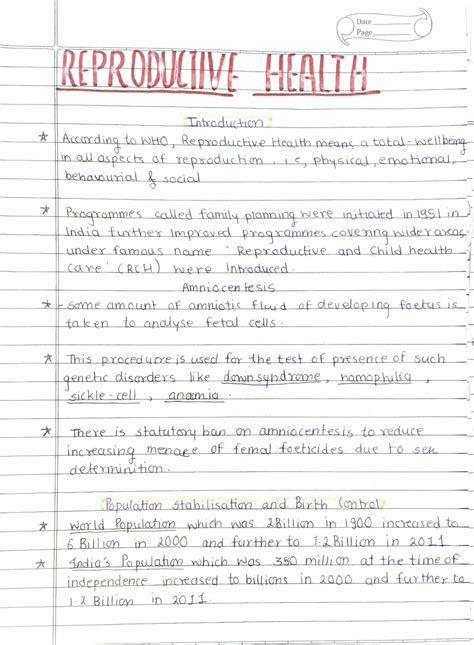 Date
Page
REPRODUCTIVE HEALTH
Introduction
* According to WHO, Reproductive Health means a total-wellbeing
in all aspects of reproduction. i.e, physical, emotional,
behavourial & social
* Programmes called family planning were initiated in 1951 in
India further Improved programmes covering wider areas
under famous name 'Reproductive and Child health
care' (RCH) were Introduced.
Amniocentesis
* - some amount of amniotic fluid of developing foetus is
taken to analyse fetal cells.
* This procedure is used for the test of presence of such
genetic disorders like down syndrome, hamophilia,
sickle-cell, anamia.
* There is statutory ban on amniocentesis to reduce
increasing menace of femal foeticides due to sex
determinition.
Population Stabilisation and Birth Control
* World Population which was 2Billion in 1900 increased to
6 Billion in 2000 and further to 1.2 Billion in 2011
* India's Population which was 350 million at the time of
independence increased to billions in 2000 and further to
1.2 Billion in 2011.